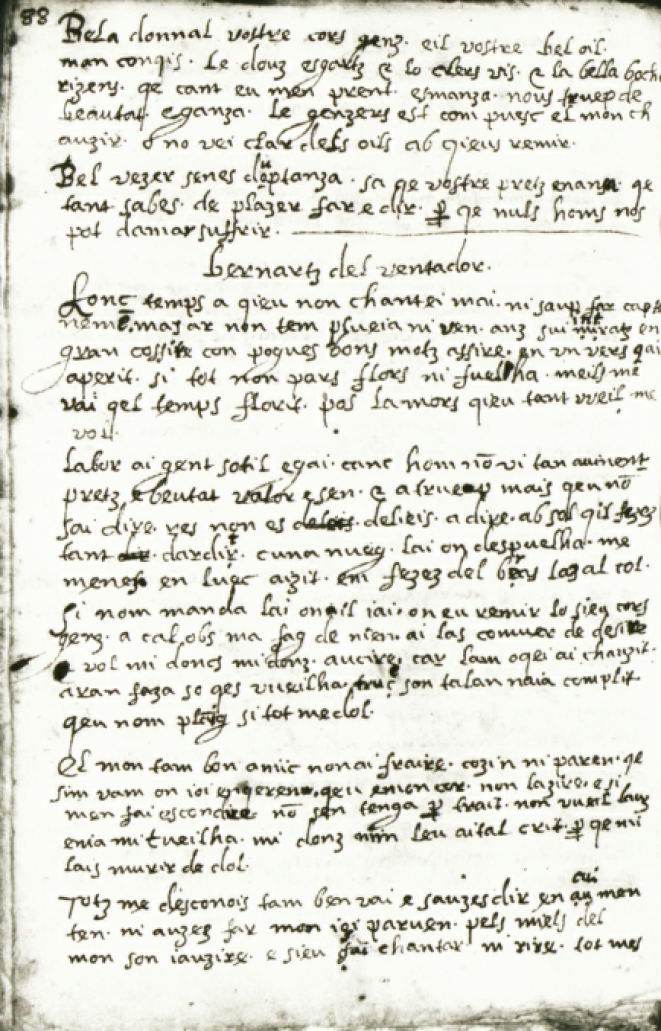 88
Bela donnal vostre cors genz. eil vostre bel oil.
man conqis. Le douz esgartz e lo clers vis. e la bella boch
rizens. qe cant eu men prent esmanza. nous truep de
beautat eganza. Le genzers est com puesc el mon ch
auzir. o no vei clar dels oils ab qieus remir.
Bel vezer senes doptanza. sa qe vostre pretz enansa qe
tant sabes. de plazer far e dir. qe nuls homs nos
pot damar suffrir.
bernartz del ventador.
Lonc temps a qieu non chantei mai. ni saup far capt
nem. mas ar non tem plueia ni ven. anz sui en
gran cossire con pogues bons motz assire. en un vers qai
aperit. si tot non pars flors ni fuelha. meils me
vai qel temps florit. pos lamors qieu tant vueil me
vol.
Labor ai gent sotil egai. canc hom nō vi tan auinent
pretz e beutat valor e sen. e a truep mais qeu nō
sai dire. res non es deleis. a dire. ab sol qil fezez
tant dardir. cuna nueg. lai on despuelha. me
menes en luec aizit. em fezez del bras laz al col.
Si nom manda lai on il iai. on eu remir lo sieu cors
genz. a cal obs ma fag de nien. ai las comuer de desire
vol mi doncs midonz. aucire. car lam oqei ai chauzit.
aran faza so qes vueilha. son talan naia complit
qeu nom plaig si tot me dol.
El mon tam bon amic non ai fraire. cozin ni paren. qe
sim vam on ioi enqeren. qeu en mon cor. non lazire. e si
men fai escondire nō sen tenga trait. non vueil lauz
enia mi tueilha. mi donz leu aital crit. qe mi
lais murir de dol.
Totz me desconois tam ben vai e sauzes dir en cui men
ten. ni auzes far mon ioi parven. pels miels del
mon son iauzire. e sieu fai chantar ni rire. tot mes